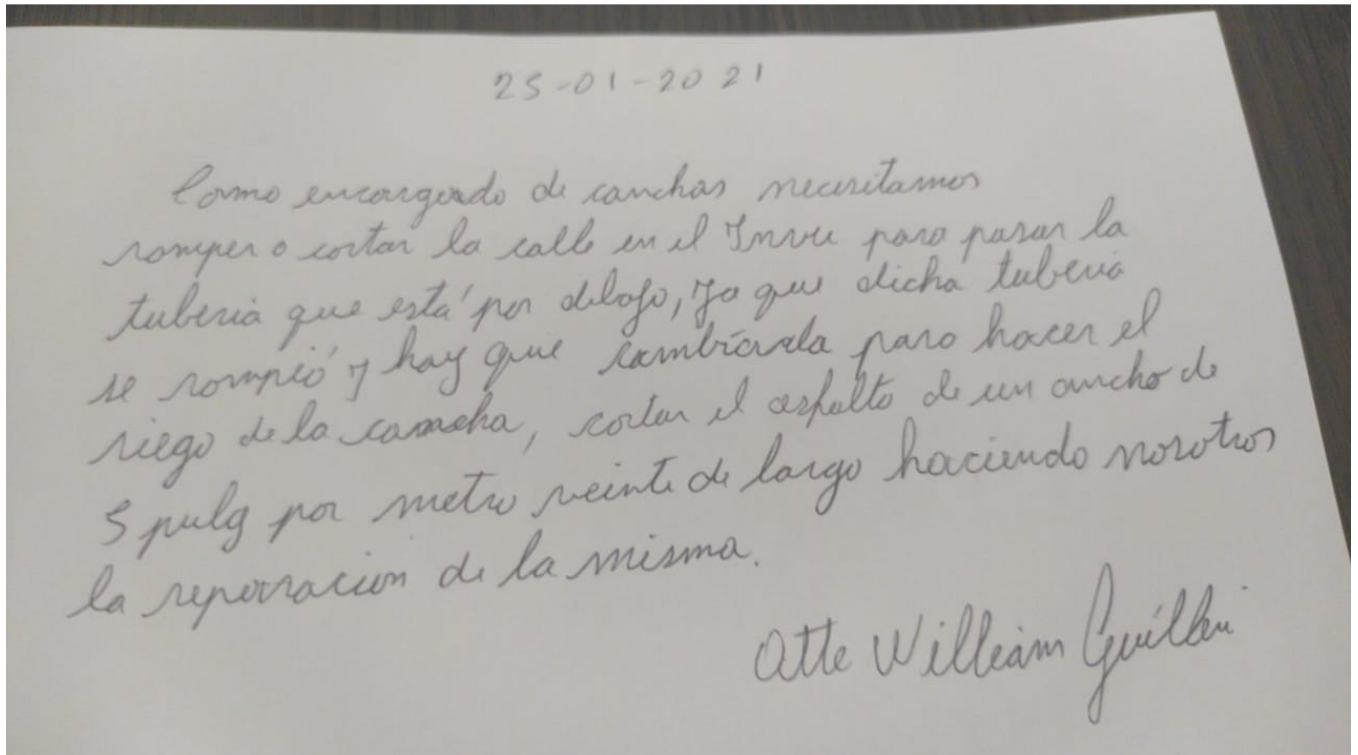 25-01-2021
Como encargado de canchas necesitamos
romper o cortar la calle en el Invu para pasar la
tuberia que está por debajo, ya que dicha tuberia
se rompió y hay que cambiarla para hacer el
riego de la cancha, cortar el asfalto de un ancho de
5 pulg por metro veinte de largo haciendo nosotros
la reparacion de la misma.
Atte William Guillén